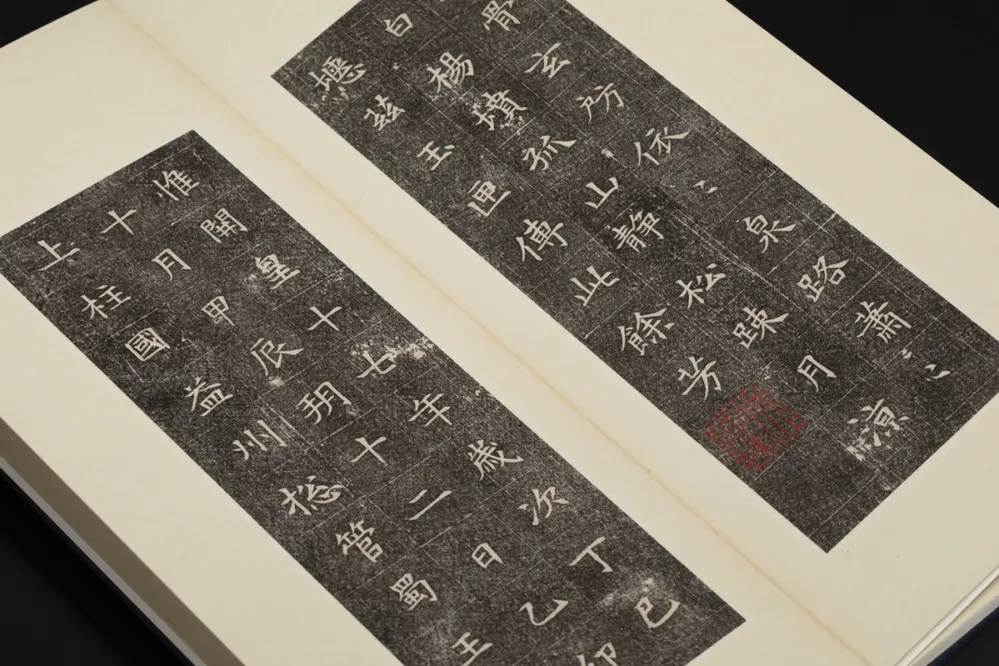 骨玄房依〻泉路蕭〻
白楊墳孤山靜松疎月涼
瘞茲玉匣傳此餘芳
惟開皇十七年歲次丁巳
十月甲辰朔十二日乙卯
上柱國益州揔管蜀王